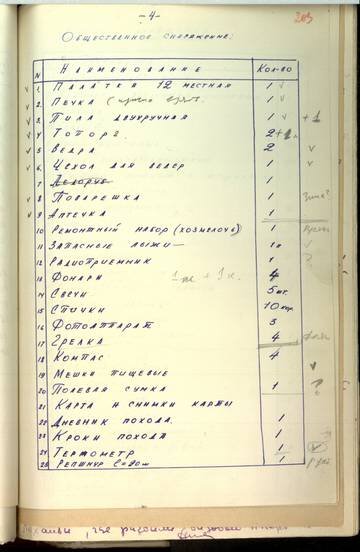 -4-
203
Общественное снаряжение:
N Наименование Кол-во
1. Палатка 12 местная 1
2. Печка 1
3. Пила двухручная 1 +1
4 Топор 2+1
5 Ведра 2
6. Чехол для ведер 1
7 Ледоруб 1
8 Поварешка 1
9 Аптечка 1
10 Ремонтный набор (хозмелочь) 1
11 Запасные лыжи 1
12 Радиоприемник 1 ?
13 Фонари 4
14 Свечи 5 шт.
15 Спички 10 кор.
16 Фотоаппарат 3
17 Грелка 4
18 Компас 4
19 Мешки пищевые
20 Полевая сумка 1 ?
21 Карта и снимки карты
22 Дневник похода. 1
23 Кроки похода 1
24 Термометр 1
25 Репшнур 1